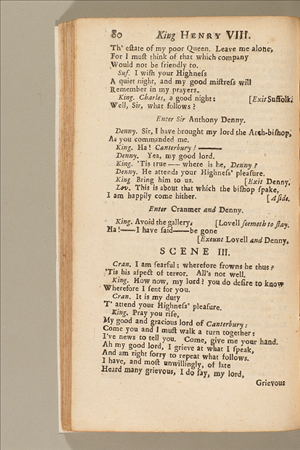 80 King HENRY VIII.
Th' eſtate of my poor Queen. Leave me alone,
For I muſt think of that which company
Would not be friendly to.
Suf. I wiſh your Highneſs
A quiet night, and my good miſtreſs will
Remember in my prayers.
King. Charles, a good night: [Exit Suffolk.
Well, Sir, what follows?
Enter Sir Anthony Denny.
Denny. Sir, I have brought my lord the Arch-biſhop,
As you commanded me.
King. Ha! Canterbury! ——
Denny. Yea, my good lord.
King. 'Tis true — where is he, Denny?
Denny. He attends your Highneſs' pleaſure.
King Bring him to us. [Exit Denny.
Lov. This is about that which the biſhop ſpake,
I am happily come hither. [Aſide.
Enter Cranmer and Denny.
King. Avoid the gallery. [Lovell ſeemeth to ſtay.
Ha!—I have ſaid—be gone
[Exeunt Lovell and Denny.
SCENE III.
Cran. I am fearful: wherefore frowns he thus?
'Tis his aſpect of terror. All's not well.
King. How now, my lord? you do deſire to know
Wherefore I ſent for you.
Cran. It is my duty
T' attend your Highneſs' pleaſure.
King. Pray you riſe,
My good and gracious lord of Canterbury:
Come you and I muſt walk a turn together:
I've news to tell you. Come, give me your hand.
Ah my good lord, I grieve at what I ſpeak,
And am right ſorry to repeat what follows.
I have, and moſt unwillingly, of late
Heard many grievous, I do ſay, my lord,
Grievous